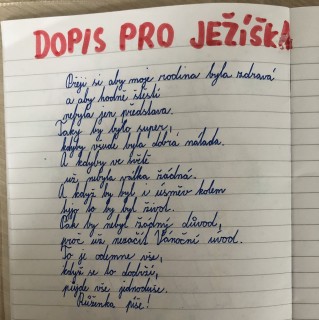 DOPIS PRO JEŽÍŠKA
Přeji si aby moje rodina byla zdravá
a aby hodně štěstí
nebyla jen představa.
Taky by bylo super,
kdyby všude byla dobrá nálada.
A kdyby ve světě
už nebyla válka žádná.
A když by byl i úsměv kolem
bylo to by byl život.
Pak by nebyl žádný důvod,
proč už nezačít Vánoční úvod.
To je odemne vše,
když se to dodrží,
půjde vše jednoduše.
Růženka píše!